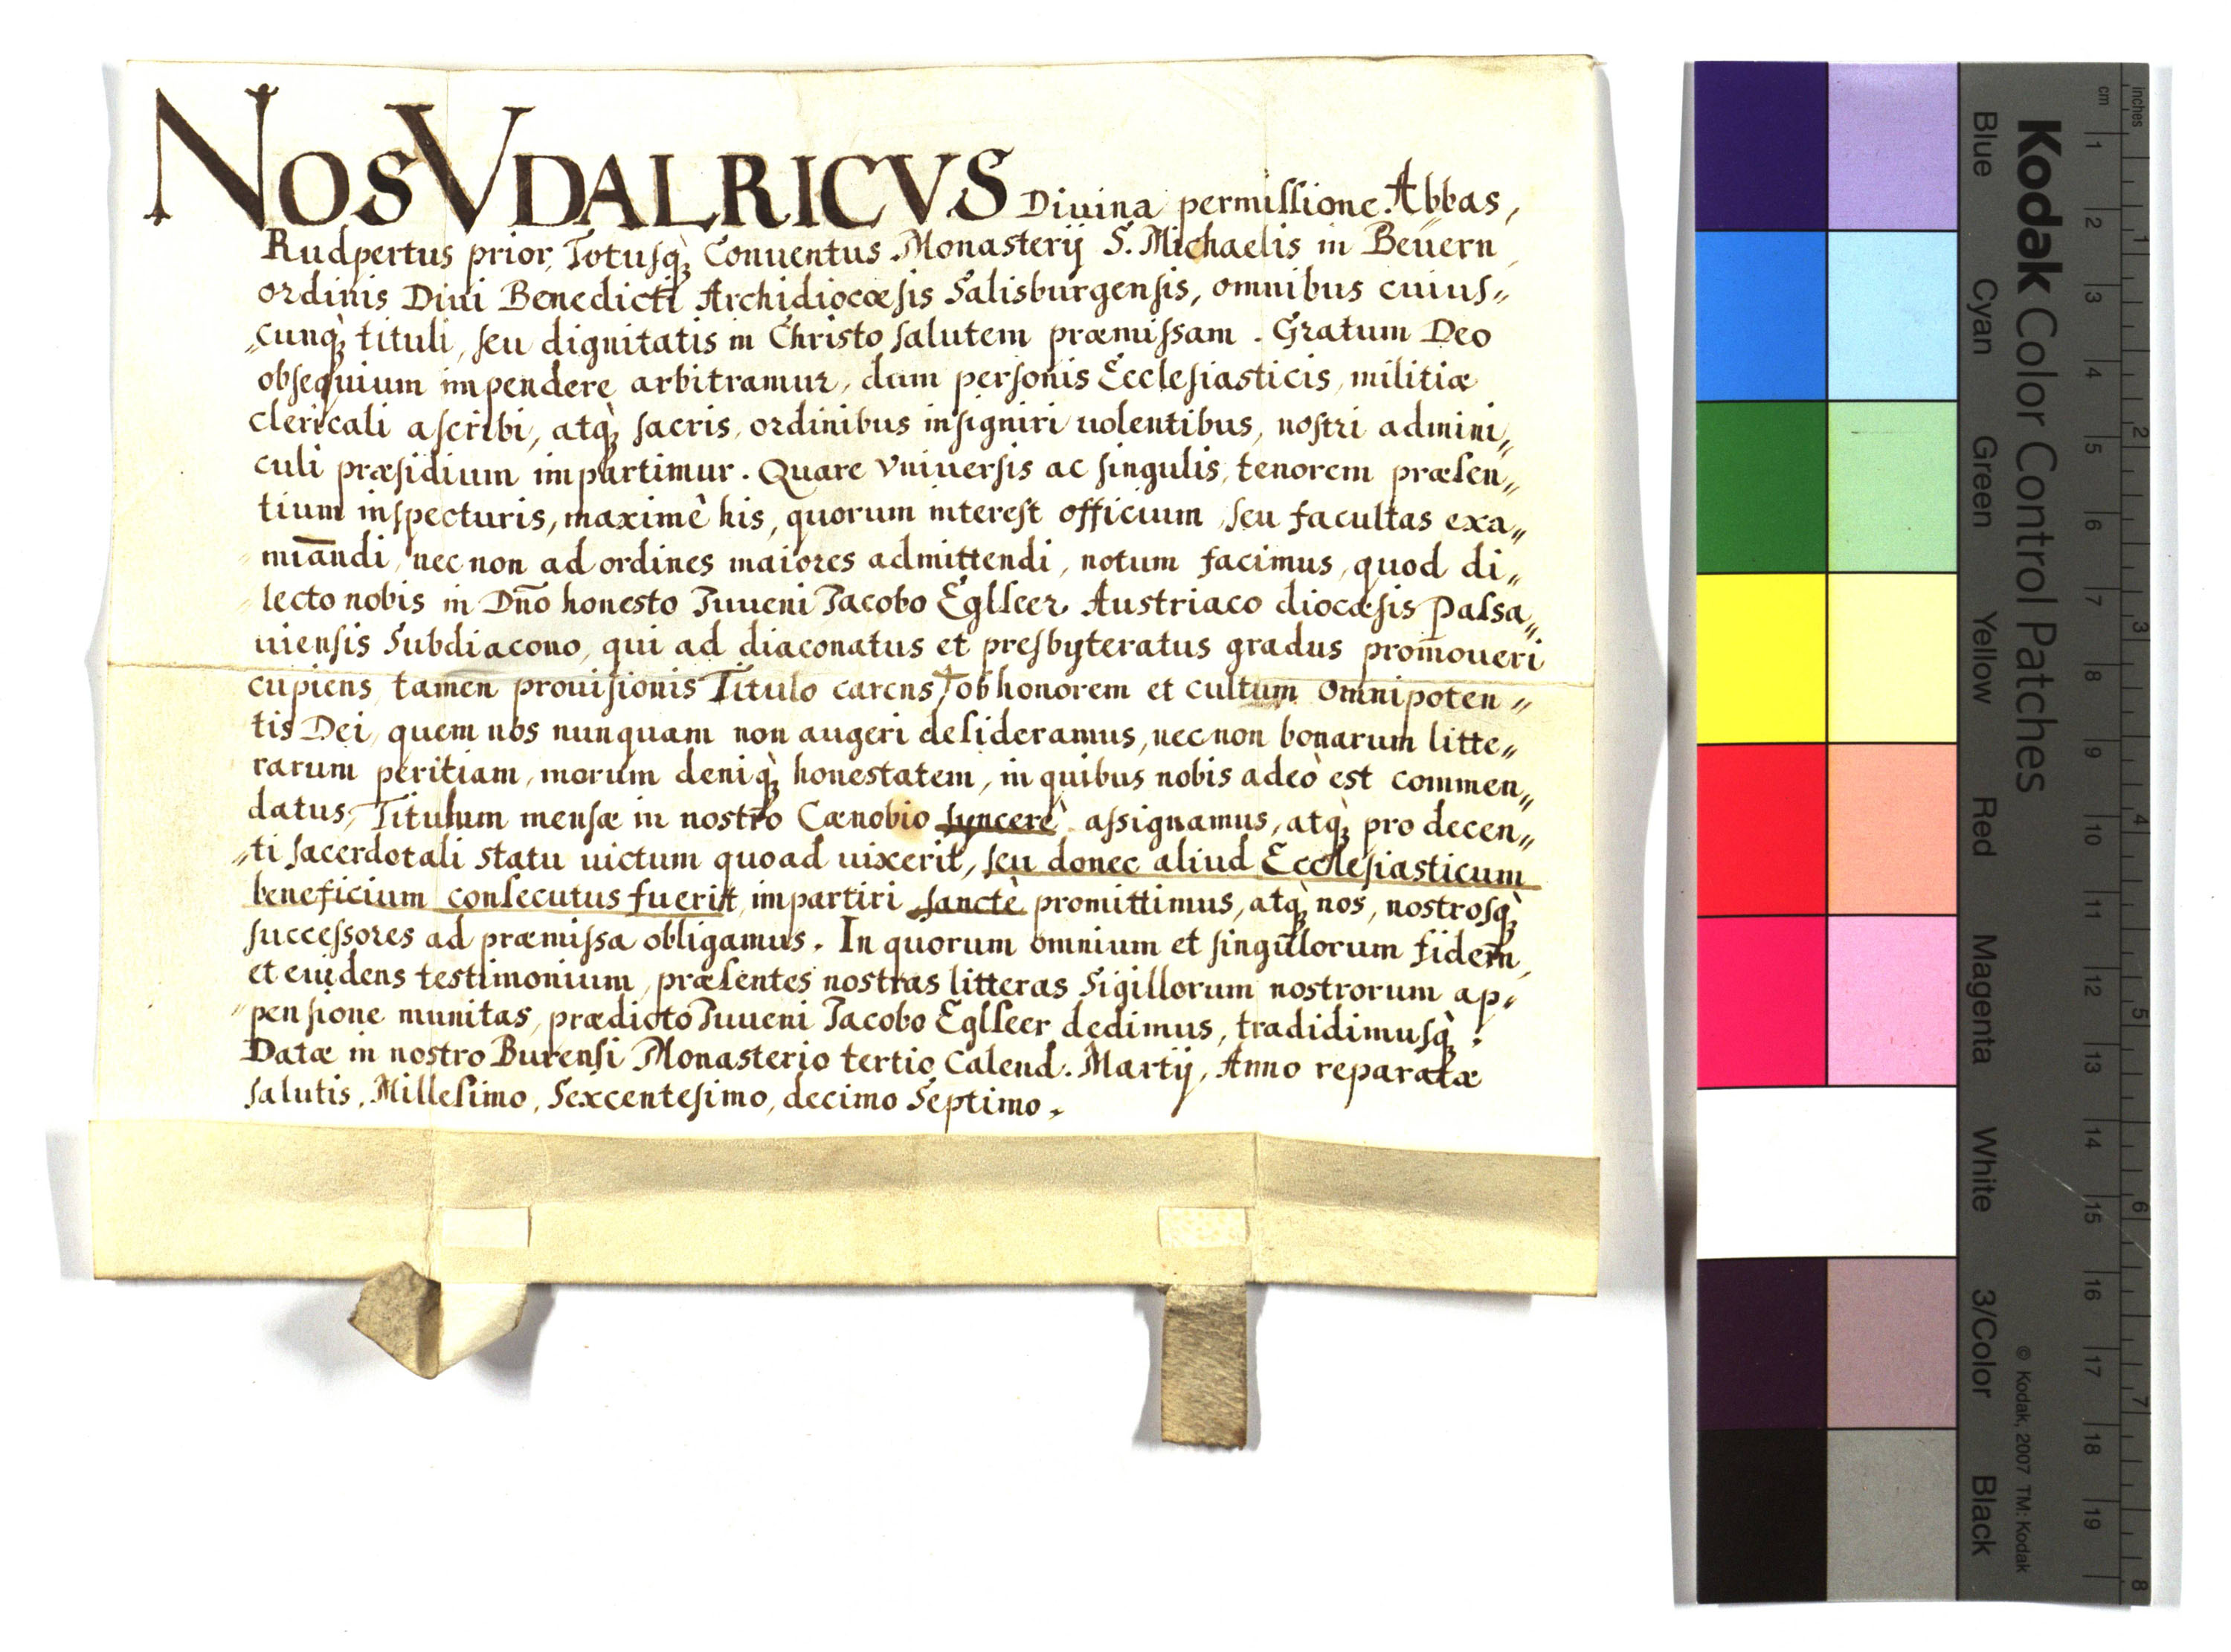 NOS VDALRICVS Diuina permißione Abbas,
Rudpertus prior, Totusq̀ꝫ Conuentus Monasterij S. Michaelis in Beuern,
ordinis Diui Benedicti Archidiocœsis Salisburgensis, omnibus cuius„
„cunq̀ꝫ tituli, seu dignitatis in Christo salutem præmissam. Gratum Deo
obsequium impendere arbitramur, dum personis Ecclesiasticis, militiæ
clericali ascribi, atq̀ꝫ sacris, ordinibus insigniri uolentibus, nostri admini„
culi præsidium impartimur. Quare Vniuersis ac singulis, tenorem præsen„
tium inspecturis, maximè his, quorum interest officium, seu facultas exa„
miāndi, nec non ad ordines maiores admittendi, notum facimus, quod di„
lecto nobis in Dn̄o honesto Juueni Jacobo Eglseer Austriaco diocæsis Passa„
uiensis Subdiacono, qui ad diaconatus et presbyteratus gradus prom̄oueri
cupiens, tamen prouisionis Titulo carens, † ob honorem et cultum Omnipoten„
tis Dei, quem nos nunquam non augeri desideramus, nec non bonarum litte„
rarum peritiam, morum deniq̀ꝫ honestatem, in quibus nobis adeò est commen„
datus, Titulum mensæ in nostro Cænobio syncerè assignamus, atq̀ꝫ pro decen„
„ti sacerdotali statu uictum quoad uixerit, seu donec aliud Ecclesiasticum
beneficium consecutus fuerit, impartiri sanctè promittimus, atq̀ꝫ nos, nostrosq̀ꝫ
successores ad præmissa obligamus. In quorum omnium et singulorum fidem,
et euidens testimonium, præsentes nostras litteras Sigillorum nostrorum ap„
„pensione munitas, prædicto Juueni Jacobo Eglseer dedimus, tradidimusq̀ꝫ.
Datæ in nostro Burensi Monasterio tertio Calend. Martij, Anno reparatæ
salutis, Millesimo, Sexcentesimo, decimo Septimo.
Kodak Color Control Patches
Blue Cyan Green Yellow Red Magenta White 3/Color Black
© Kodak, 2007 TM: Kodak
inches 1 2 3 4 5 6 7 8
cm 1 2 3 4 5 6 7 8 9 10 11 12 13 14 15 16 17 18 19